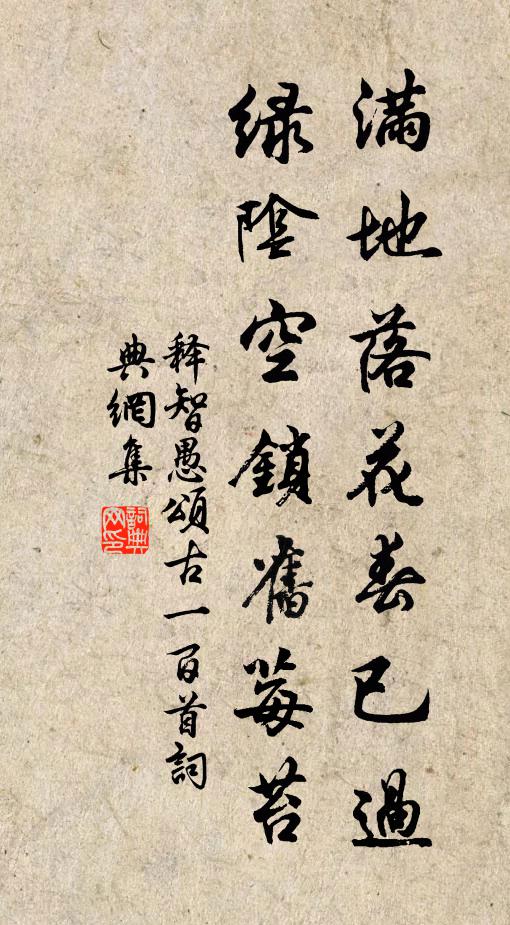 滿地落花春已過
绿陰空鎖舊莓苔
释智愚頌古一百首詞
典網集
詞典网印